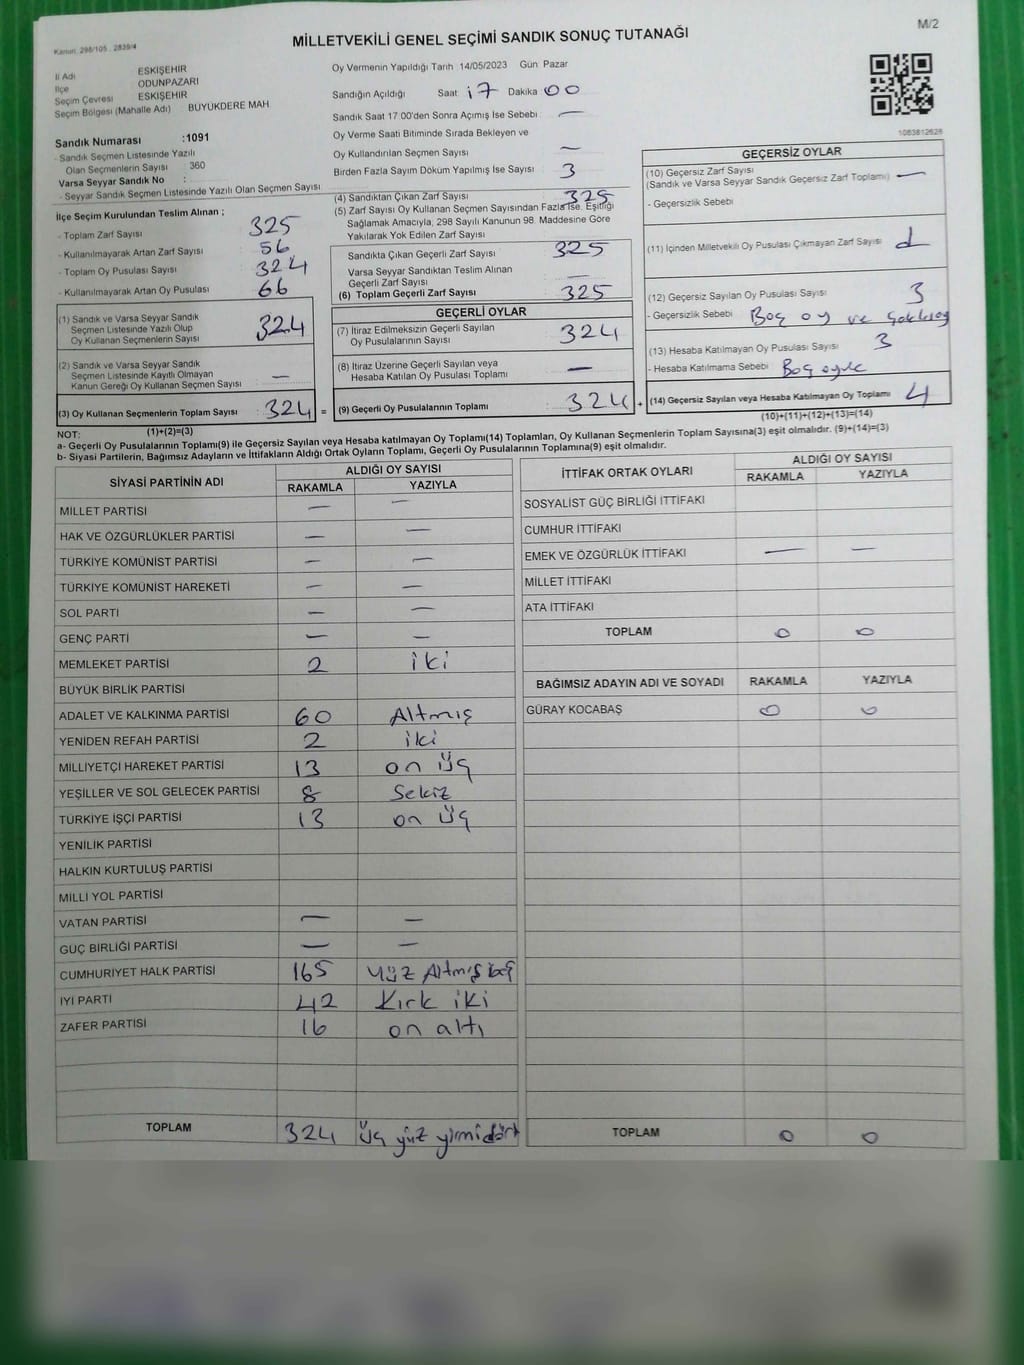 Kanun: 298/105 , 2839/4
M/2
MİLLETVEKİLİ GENEL SEÇİMİ SANDIK SONUÇ TUTANAĞI
İl Adı ESKİŞEHİR
İlçe ODUNPAZARI
Seçim Çevresi ESKİŞEHİR
Seçim Bölgesi (Mahalle Adı) BÜYÜKDERE MAH
Sandık Numarası :1091
- Sandık Seçmen Listesinde Yazılı
Olan Seçmenlerin Sayısı : 360
Varsa Seyyar Sandık No :
- Seyyar Sandık Seçmen Listesinde Yazılı Olan Seçmen Sayısı
Oy Vermenin Yapıldığı Tarih 14/05/2023 Gün Pazar
Sandığın Açıldığı Saat 17 Dakika 00
Sandık Saat 17:00'den Sonra Açılmış İse Sebebi —
Oy Verme Saati Bitiminde Sırada Bekleyen ve
Oy Kullandırılan Seçmen Sayısı —
Birden Fazla Sayım Döküm Yapılmış İse Sayısı 3
1083812628
İlçe Seçim Kurulundan Teslim Alınan ;
- Toplam Zarf Sayısı : 325
- Kullanılmayarak Artan Zarf Sayısı : 56
- Toplam Oy Pusulası Sayısı : 324
- Kullanılmayarak Artan Oy Pusulası : 66
(1) Sandık ve Varsa Seyyar Sandık
Seçmen Listesinde Yazılı Olup
Oy Kullanan Seçmenlerin Sayısı : 324
(2) Sandık ve Varsa Seyyar Sandık
Seçmen Listesinde Kayıtlı Olmayan
Kanun Gereği Oy Kullanan Seçmen Sayısı : —
(3) Oy Kullanan Seçmenlerin Toplam Sayısı : 324 =
(1)+(2)=(3)
(4) Sandıktan Çıkan Zarf Sayısı : 325
(5) Zarf Sayısı Oy Kullanan Seçmen Sayısından Fazla İse, Eşitliği
Sağlamak Amacıyla, 298 Sayılı Kanunun 98. Maddesine Göre
Yakılarak Yok Edilen Zarf Sayısı
Sandıkta Çıkan Geçerli Zarf Sayısı : 325
Varsa Seyyar Sandıktan Teslim Alınan
Geçerli Zarf Sayısı : —
(6) Toplam Geçerli Zarf Sayısı : 325
GEÇERLİ OYLAR
(7) İtiraz Edilmeksizin Geçerli Sayılan
Oy Pusulalarının Sayısı : 324
(8) İtiraz Üzerine Geçerli Sayılan veya
Hesaba Katılan Oy Pusulası Toplamı : —
(9) Geçerli Oy Pusulalarının Toplamı : 324 +
GEÇERSİZ OYLAR
(10) Geçersiz Zarf Sayısı
(Sandık ve Varsa Seyyar Sandık Geçersiz Zarf Toplamı) —
- Geçersizlik Sebebi
(11) İçinden Milletvekili Oy Pusulası Çıkmayan Zarf Sayısı
(12) Geçersiz Sayılan Oy Pusulası Sayısı : 3
- Geçersizlik Sebebi : Boş oy ve
(13) Hesaba Katılmayan Oy Pusulası Sayısı : 3
- Hesaba Katılmama Sebebi : Boş
(14) Geçersiz Sayılan veya Hesaba Katılmayan Oy Toplamı : 4
(10)+(11)+(12)+(13)=(14)
NOT:
a- Geçerli Oy Pusulaları Toplamı(9) ile Geçersiz Sayılan veya Hesaba katılmayan Oy Toplamı(14) Toplamları, Oy Kullanan Seçmenlerin Toplam Sayısına(3) eşit olmalıdır. (9)+(14)=(3)
b- Siyasi Partilerin, Bağımsız Adayların ve İttifakların Aldığı Ortak Oyların Toplamı, Geçerli Oy Pusulalarının Toplamına(9) eşit olmalıdır.
SİYASİ PARTİNİN ADI ALDIĞI OY SAYISI
RAKAMLA YAZIYLA
MİLLET PARTİSİ — —
HAK VE ÖZGÜRLÜKLER PARTİSİ — —
TÜRKİYE KOMÜNİST PARTİSİ — —
TÜRKİYE KOMÜNİST HAREKETİ — —
SOL PARTİ — —
GENÇ PARTİ — —
MEMLEKET PARTİSİ 2 iki
BÜYÜK BİRLİK PARTİSİ
ADALET VE KALKINMA PARTİSİ 60 Altmış
YENİDEN REFAH PARTİSİ 2 iki
MİLLİYETÇİ HAREKET PARTİSİ 13 on üç
YEŞİLLER VE SOL GELECEK PARTİSİ 8 Sekiz
TÜRKİYE İŞÇİ PARTİSİ 13 on üç
YENİLİK PARTİSİ
HALKIN KURTULUŞ PARTİSİ
MİLLİ YOL PARTİSİ
VATAN PARTİSİ — —
GÜÇ BİRLİĞİ PARTİSİ — —
CUMHURİYET HALK PARTİSİ 165 yüz Altmış beş
İYİ PARTİ 42 Kırk iki
ZAFER PARTİSİ 16 on altı
TOPLAM 324 üç yüz yirmi dört
İTTİFAK ORTAK OYLARI ALDIĞI OY SAYISI
RAKAMLA YAZIYLA
SOSYALİST GÜÇ BİRLİĞİ İTTİFAKI
CUMHUR İTTİFAKI
EMEK VE ÖZGÜRLÜK İTTİFAKI — —
MİLLET İTTİFAKI
ATA İTTİFAKI
TOPLAM 0 0
BAĞIMSIZ ADAYIN ADI VE SOYADI RAKAMLA YAZIYLA
GÜRAY KOCABAŞ 0 0
TOPLAM 0 0